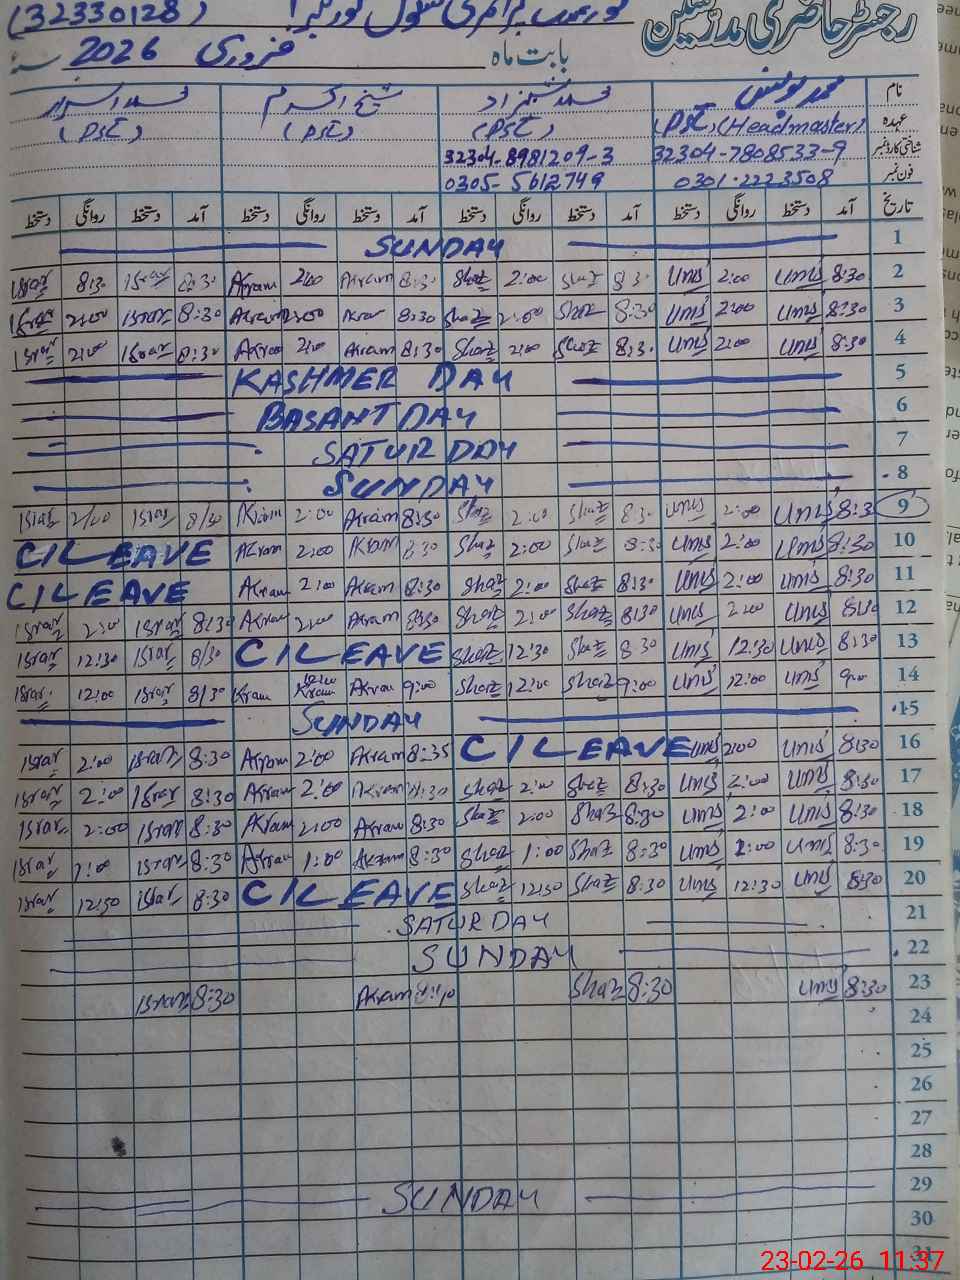 رجسٹر حاضری مدرسین
گورنمنٹ پرائمری سکول (32330128)
بابت ماہ فروری 2026
نام محمد یونس محمد شہزاد شیخ اکرم محمد اسرار
عہدہ PST (Headmaster) (PST) (PST) (PST)
شناختی کارڈ نمبر 32304-7808533-9 32304-8981209-3
فون نمبر 0301-2223508 0305-5612749
تاریخ آمد دستخط روانگی دستخط آمد دستخط روانگی دستخط آمد دستخط روانگی دستخط آمد دستخط روانگی دستخط
SUNDAY 1
Israr 8:30 Israr 8:30 Akram 2:00 Akram 8:30 Shaz 2:00 Shaz 8:3 Unis 2:00 Unis 8:30 2
Israr 2:00 Israr 8:30 Akram 2:00 Akram 8:30 Shaz 2:00 Shaz 8:30 Unis 2:00 Unis 8:30 3
Israr 2:00 Israr 8:30 Akram 2:00 Akram 8:30 Shaz 2:00 Shaz 8:3 Unis 2:00 Unis 8:30 4
KASHMER DAY 5
BASANT DAY 6
SATUR DAY 7
SUNDAY 8
Israr 2/00 Israr 8/30 Akram 2:00 Akram 8:30 Shaz 2:00 Shaz 8:3 Unis 2:00 Unis 8:3 9
C I L EAVE Akram 2:00 Akram 8:30 Shaz 2:00 Shaz 8:30 Unis 2:00 Unis 8:30 10
C I L EAVE Akram 2:00 Akram 8:30 Shaz 2:00 Shaz 8:30 Unis 2:00 Unis 8:30 11
Israr 2:00 Israr 8:30 Akram 2:00 Akram 8:30 Shaz 2:00 Shaz 8:30 Unis 2:00 Unis 12
Israr 12:30 Israr 8/30 C I L EAVE Shaz 12:30 Shaz 8:30 Unis 12:30 Unis 8:30 13
Israr 12:00 Israr 8/30 Kram 12:00 Kram Akram 9:00 Shaz 12:00 Shaz 9:00 Unis 12:00 Unis 9:00 14
SUNDAY 15
Israr 2:00 Israr 8:30 Akram 2:00 Akram 8:35 C I L EAVE Unis 2:00 Unis 8:30 16
Israr 2:00 Israr 8:30 Akram 2:00 Akram 8:30 Shaz 2:00 Shaz 8:30 Unis 2:00 Unis 8:30 17
Israr 2:00 Israr 8:30 Akram 2:00 Akram 8:30 Shaz 2:00 Shaz 8:30 Unis 2:00 Unis 8:30 18
Israr 1:00 Israr 8:30 Akram 1:00 Akram 8:30 Shaz 1:00 Shaz 8:30 Unis 1:00 Unis 8:30 19
Israr 12:30 Israr 8:30 C I L EAVE Shaz 12:30 Shaz 8:30 Unis 12:30 Unis 8:30 20
SATUR DAY 21
SUNDAY 22
Israr 8:30 Akram Shaz 8:30 Unis 8:30 23
24
25
26
27
28
SUNDAY 29
30
31
23-02-26 11:37